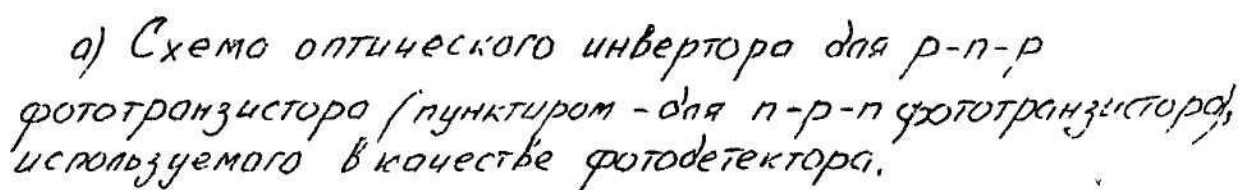 а) Схема оптического инвертора для p-n-p
фототранзистора (пунктиром - для n-p-n фототранзистора),
используемого в качестве фотодетектора.